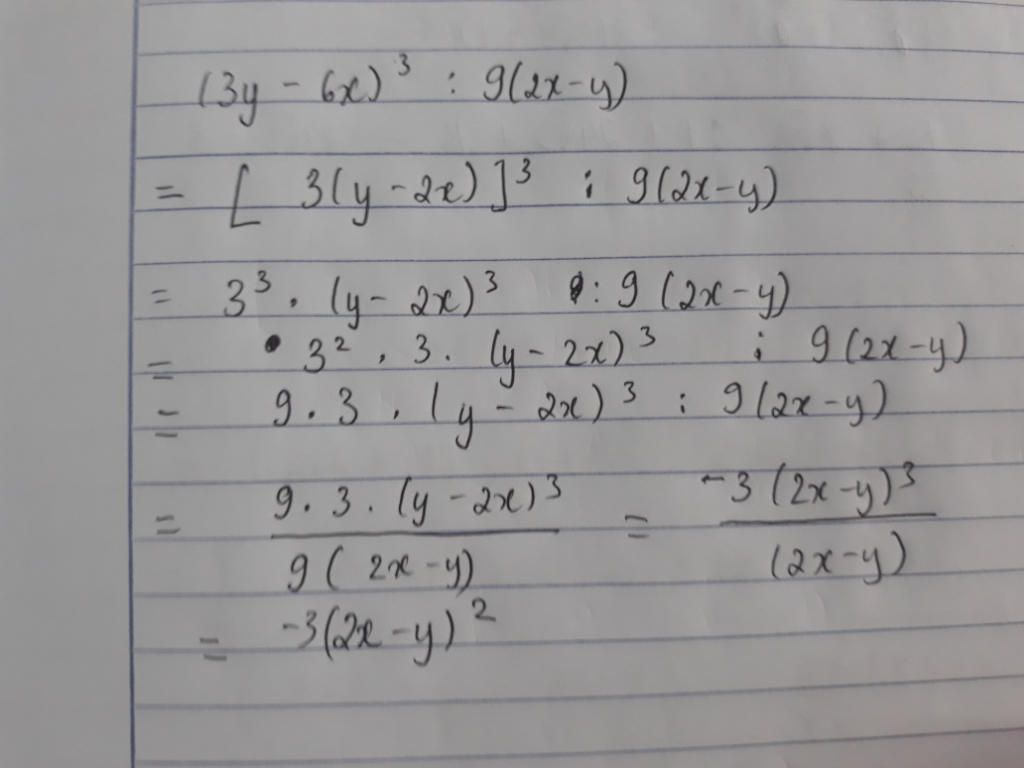 (3y - 6x)³ : 9(2x-y)
= [ 3(y-2x)]³ : 9(2x-y)
= 3³ . (y- 2x)³ : 9 (2x-y)
= 3² . 3 . (y- 2x)³ : 9(2x-y)
= 9 . 3 . (y - 2x)³ : 9(2x-y)
= \frac{9 . 3 . (y-2x)³}{9( 2x-y)} = \frac{-3(2x-y)³}{(2x-y)}
= -3(2x-y)²